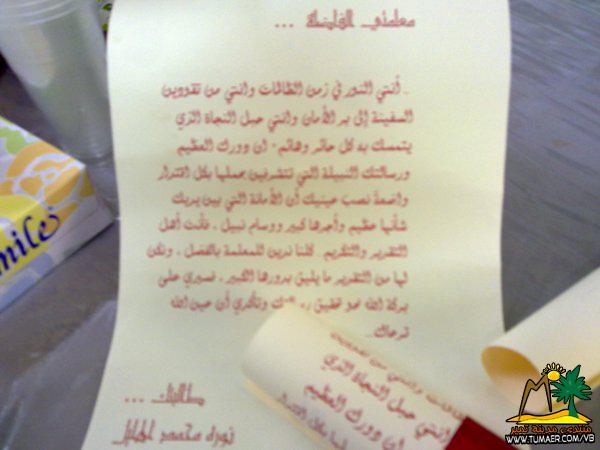 معلمتي الفاضلة ...
.. أنتي النور في زمن الظلمات وانتي من تقودين
السفينة إلى بر الأمان وانتي حبل النجاة الذي
يتمسك به كل حائر وهائم - ان دورك العظيم
ورسالتك النبيلة التي تتشرفين بحملها بكل اقتدار
واضعةً نصب عينيك أن الأمانة التي بين يديك
شأنها عظيم وأجرها كبير ووسام نبيل ، فأنت أهل
التقدير والتكريم .. كلنا ندين للمعلمة بالفضل ، ونكن
لها من التقدير ما يليق بدورها الكبير ، فسيري على
بركة الله نحو تحقيق وتأكدي أن عين الله
ترعاك ...
طالبتك ...
نوره محمد
وانتي من
انتي حبل النجاة الذي
ان دورك العظيم
miles
منتدى مدينة تمير
WWW.TUMAER.COM/VB